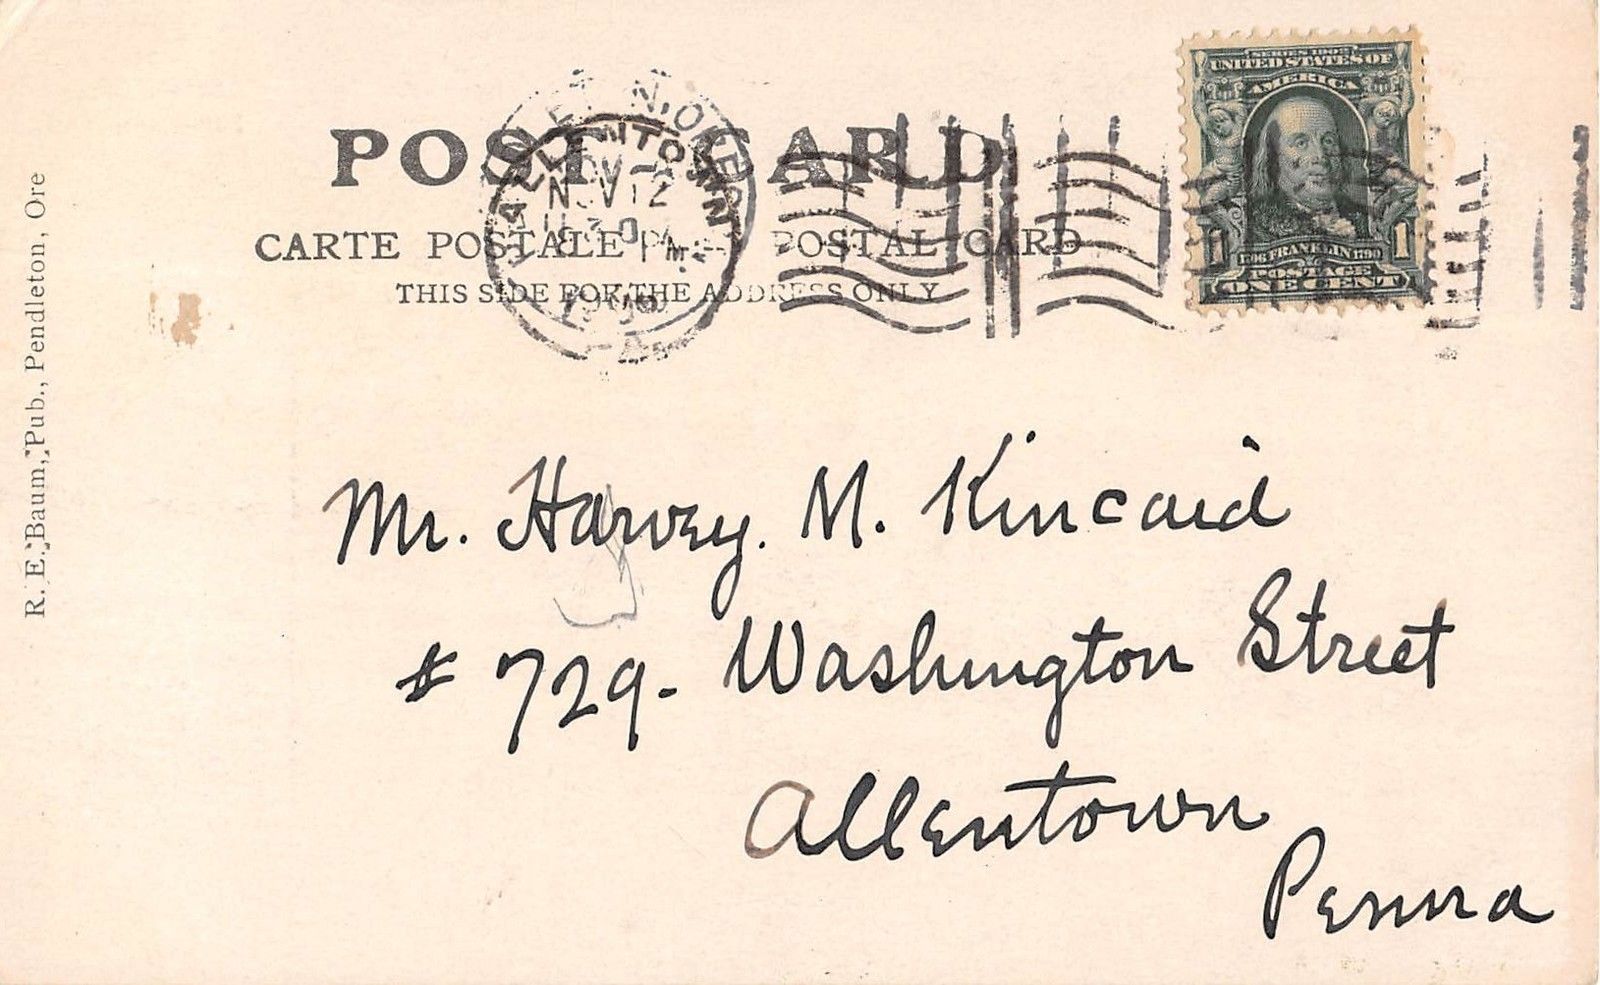 POST CARD
CARTE POSTALE POSTAL CARD
THIS SIDE FOR THE ADDRESS ONLY
ALLENTOWN
NOV 12
PM
SERIES 1902
UNITED STATES OF
AMERICA
1 1706 FRANKLIN 1790 1
POSTAGE
ONE CENT
R. E. Baum, Pub., Pendleton, Ore
Mr. Harvey. M. Kincaid
# 729- Washington Street
Allentown
Penna